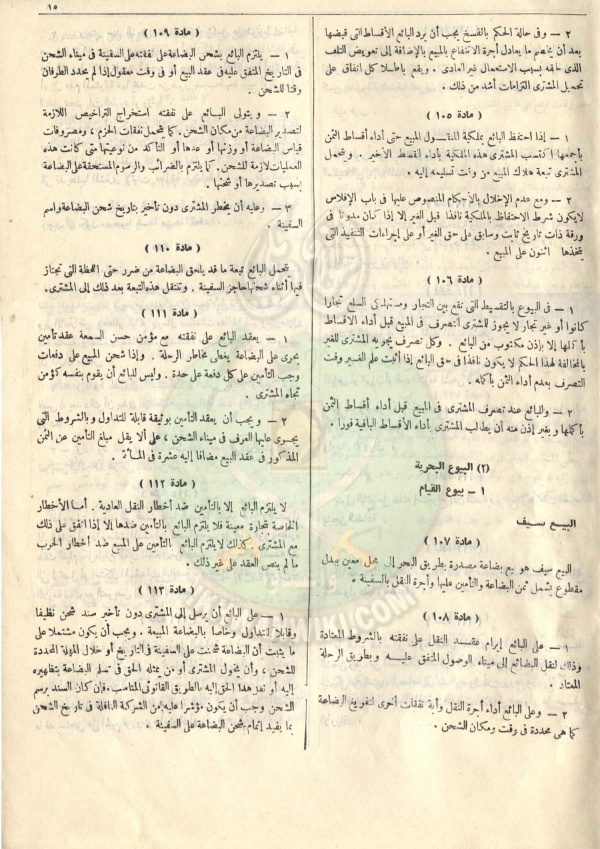 ١٥
٢ - وفى حالة الحكم بالفسخ يجب أن يرد البائع الأقساط التى قبضها
بعد أن يخصم ما يعادل أجرة الانتفاع بالمبيع بالإضافة إلى تعويض التلف
الذى لحقه بسبب الاستعمال غير العادى . ويقع باطلا كل اتفاق على
تحميل المشترى التزامات أشد من ذلك .
( مادة ١٠٥ )
١ - إذا احتفظ البائع بملكية المنقول المبيع حتى أداء أقساط الثمن
بأجمعها اكتسب المشترى هذه الملكية بأداء القسط الأخير . ويتحمل
المشترى تبعة هلاك المبيع من وقت تسليمه إليه .
٢ - ومع عدم الإخلال بالأحكام المنصوص عليها فى باب الإفلاس
لا يكون شرط الاحتفاظ بالملكية نافذا قبل الغير إلا إذا كان مدونا فى
ورقة ذات تاريخ ثابت وسابق على حق الغير أو على إجراءات التنفيذ التى
يتخذها الدائنون على المبيع .
( مادة ١٠٦ )
١ - فى البيوع بالتقسيط التى تقع بين التجار ومستهلكى السلع تجارا
كانوا أو غير تجار لا يجوز للمشترى التصرف فى المبيع قبل أداء الأقساط
بأكملها إلا بإذن مكتوب من البائع . وكل تصرف يجريه المشترى للغير
بالمخالفة لهذا الحكم لا يكون نافذا فى حق البائع إذا أثبت علم الغير وقت
التصرف بعدم أداء الثمن بأكمله .
٢ - وللبائع عند تصرف المشترى فى المبيع قبل أداء أقساط الثمن
بأكملها وبغير إذن منه أن يطالب المشترى بأداء الأقساط الباقية فورا .
(٢) البيوع البحرية
١ - بيوع القيام
البيع سيف
( مادة ١٠٧ )
البيع سيف هو بيع بضاعة مصدرة بطريق البحر إلى محل معين ببدل
مقطوع يشمل ثمن البضاعة والتأمين عليها وأجرة النقل بالسفينة .
( مادة ١٠٨ )
١ - على البائع إبرام عقد النقل على نفقته بالشروط المعتادة
وذلك لنقل البضائع إلى ميناء الوصول المتفق عليه وبطريق الرحلة
المعتاد .
٢ - وعلى البائع أداء أجرة النقل وأية نفقات أخرى لتفريغ البضاعة
كما هى محددة فى وقت ومكان الشحن .
( مادة ١٠٩ )
١ - يلتزم البائع بشحن البضاعة على نفقته على السفينة فى ميناء الشحن
فى التاريخ المتفق عليه فى عقد البيع أو فى وقت معقول إذا لم يحدد الطرفان
وقتا للشحن .
٢ - ويتولى البائع على نفقته استخراج التراخيص اللازمة
لتصدير البضاعة من مكان الشحن . كما يتحمل نفقات الحزم ، ومصروفات
قياس البضاعة أو وزنها أو عدها أو التأكد من نوعيتها متى كانت هذه
العمليات لازمة للشحن . كما يلتزم بالضرائب والرسوم المستحقة على البضاعة
بسبب تصديرها أو شحنها .
٣ - وعليه أن يخطر المشترى دون تأخير بتاريخ شحن البضاعة واسم
السفينة .
( مادة ١١٠ )
يتحمل البائع تبعة ما قد يلحق البضاعة من ضرر حتى اللحظة التى تجتاز
فيها أثناء شحنها حاجز السفينة . وتنتقل هذه التبعة بعد ذلك إلى المشترى .
( مادة ١١١ )
١ - يعقد البائع على نفقته مع مؤمن حسن السمعة عقد تأمين
بحرى على البضاعة يغطى مخاطر الرحلة . وإذا شحن المبيع على دفعات
وجب التأمين على كل دفعة على حدة . وليس للبائع أن يقوم بنفسه كمؤمن
تجاه المشترى
٢ - ويجب أن يعقد التأمين بوثيقة قابلة للتداول وبالشروط التى
يجرى عليها العرف فى ميناء الشحن ، على ألا يقل مبلغ التأمين عن الثمن
المذكور فى عقد البيع مضافا إليه عشرة فى المائة .
( مادة ١١٢ )
لا يلتزم البائع إلا بالتأمين ضد أخطار النقل العادية . أما الأخطار
الخاصة بتجارة معينة فلا يلتزم البائع بالتأمين ضدها إلا إذا اتفق على ذلك
مع المشترى . كذلك لا يلتزم البائع بالتأمين على المبيع ضد أخطار الحرب
ما لم ينص العقد على غير ذلك .
( مادة ١١٣ )
١ - على البائع أن يرسل إلى المشترى دون تأخير سند شحن نظيفا
وقابلا للتداول وخاصا بالبضاعة المبيعة . ويجب أن يكون مشتملا على
ما يثبت أن البضاعة شحنت على السفينة فى التاريخ أو خلال المهلة المحددة
للشحن ، وأن يخول المشترى أو من يمثله الحق فى تسلم البضاعة بتظهيره
إليه أو نقل هذا الحق إليه بالطريق القانونى المناسب. فإن كان السند برسم
الشحن وجب أن يكون مؤشرا عليه من الشركة الناقلة فى تاريخ الشحن
بما يفيد إتمام شحن البضاعة على السفينة .